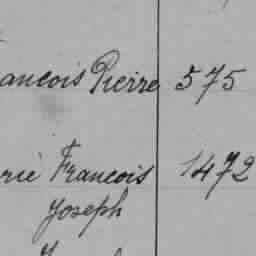 ancois Pierre 575
rie Francois 1472
Joseph